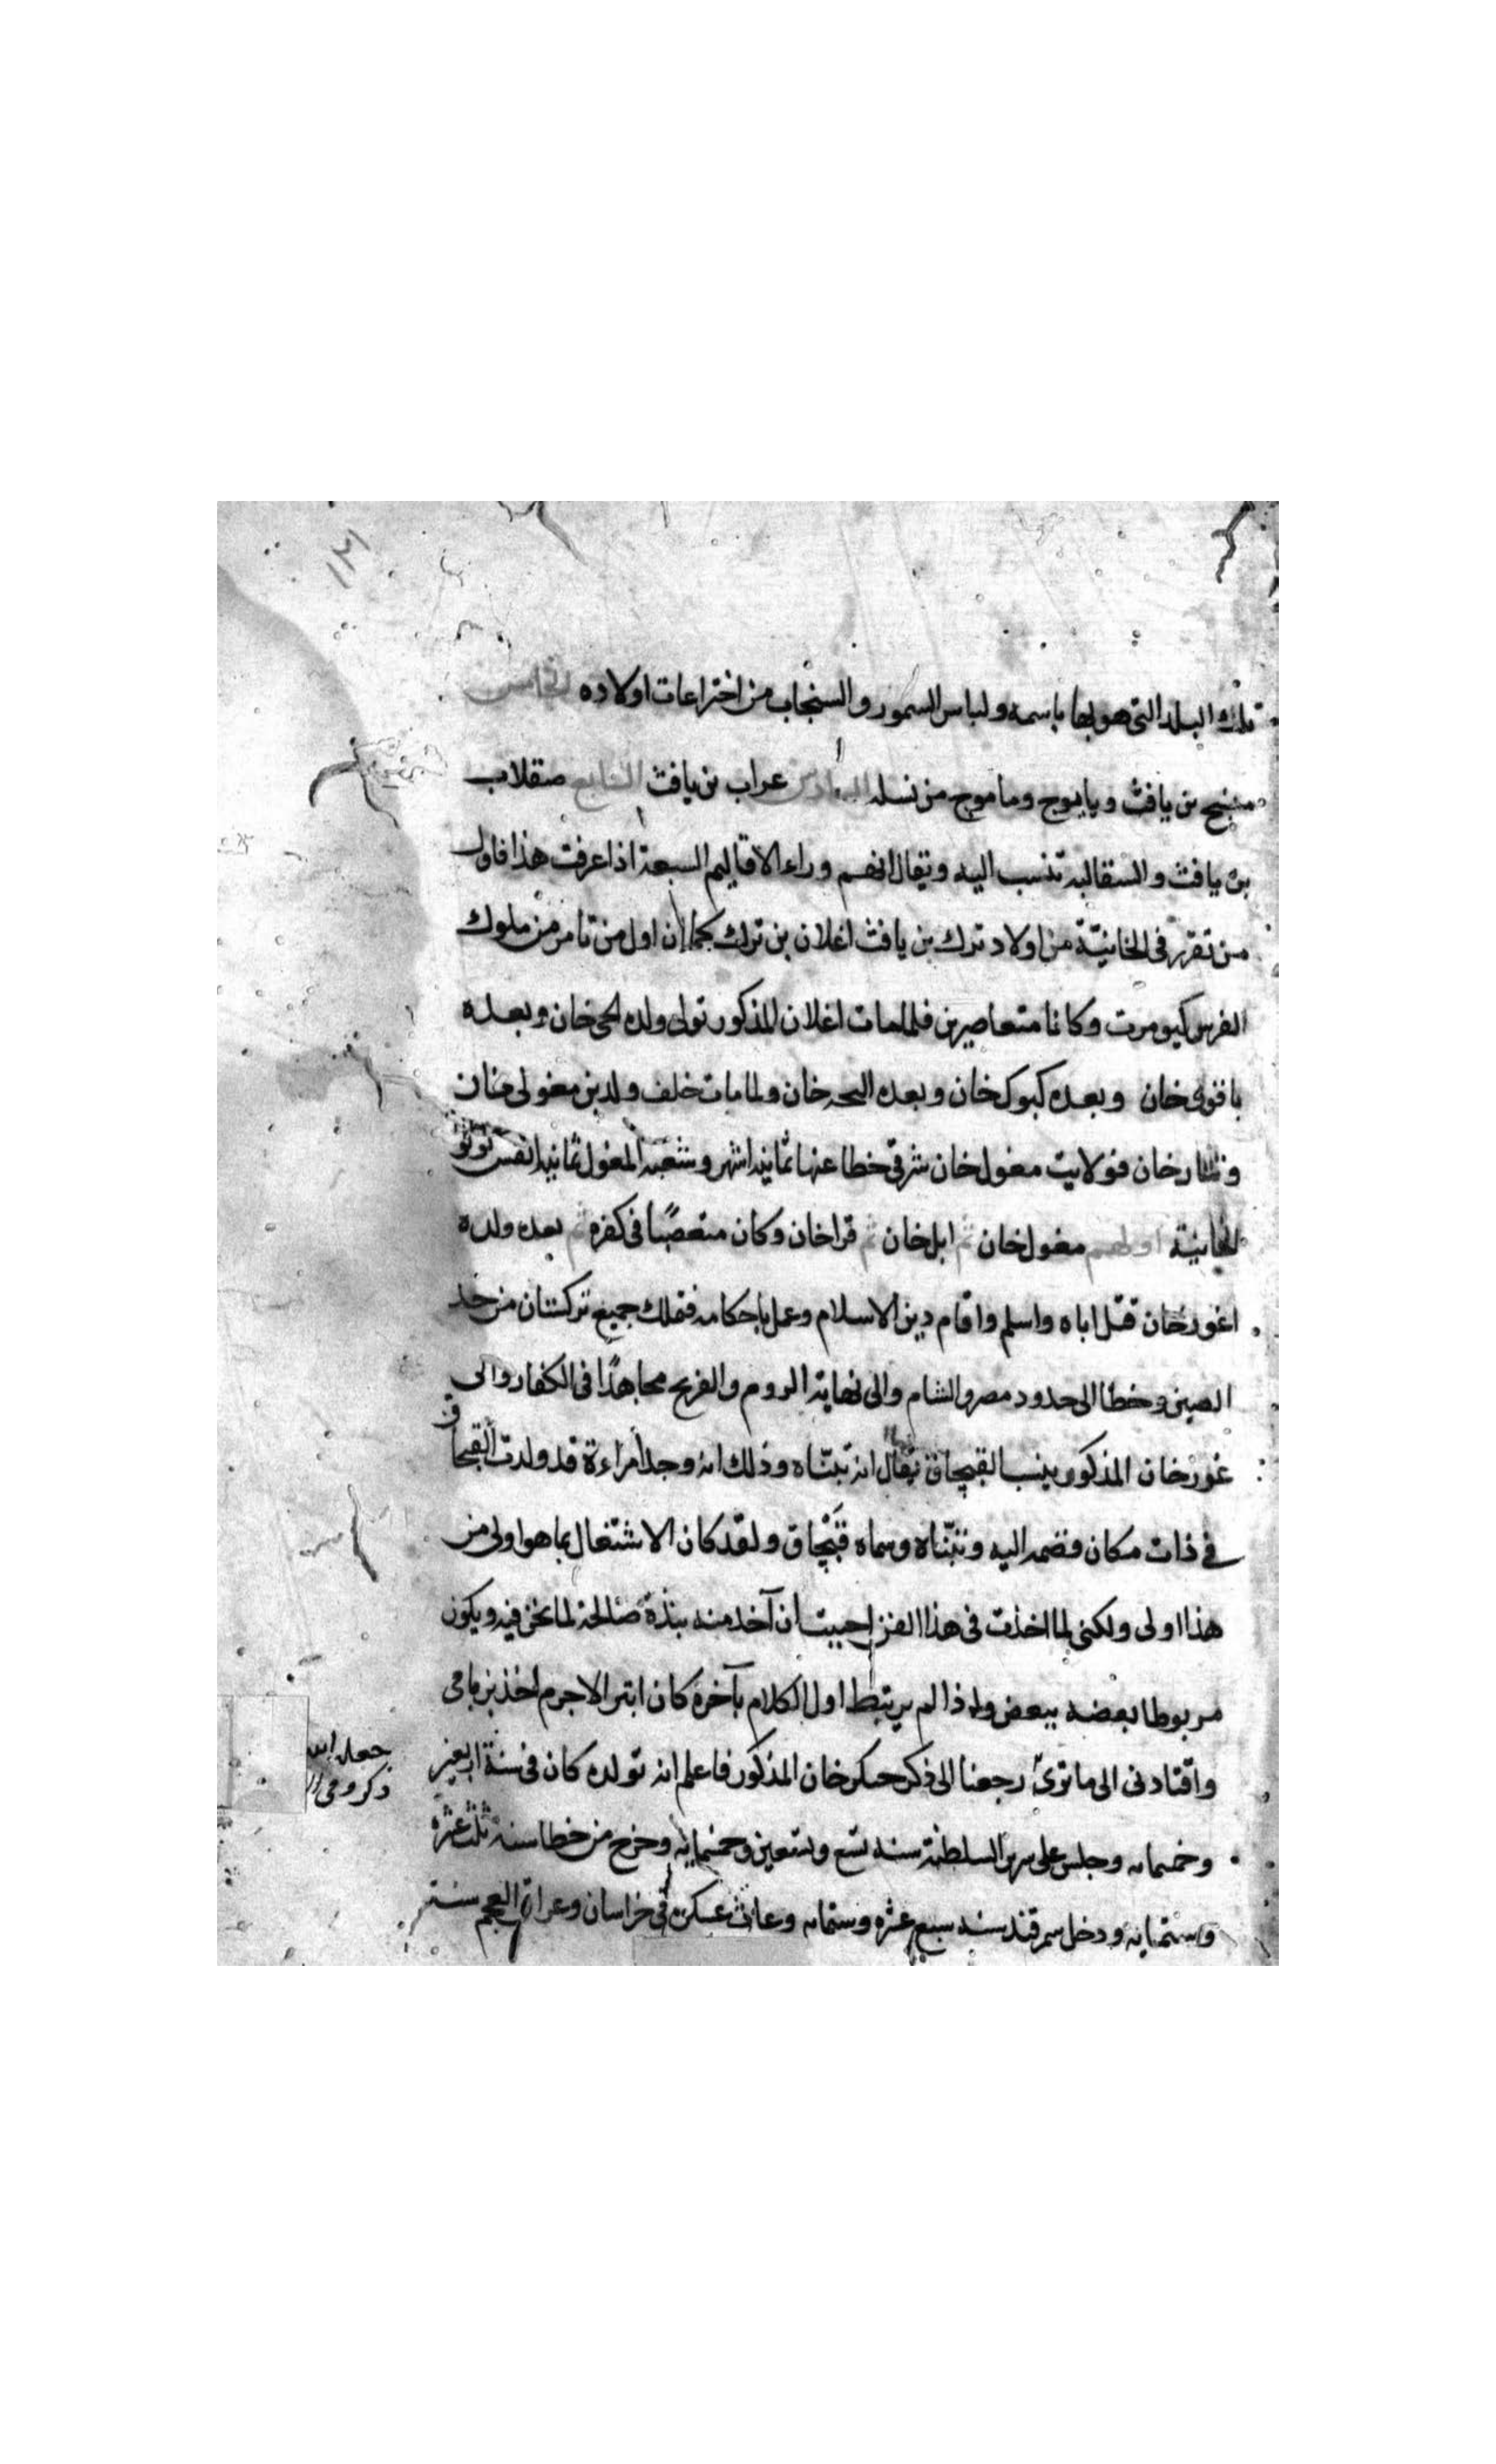 ١٣١
تلك البلد التى هو بها باسمه ولباس السمور والسنجاب من اختراعات اولاده الخامس
منبج بن يافث وياجوج وماجوج من نسله السادس عراب بن يافث السابع صقلاب
بن يافث والسقالبه تنسب اليه ويقال انهم وراء الاقاليم السبعة اذا عرفت هذا فاول
من تقرر فى الخانيّة من اولاد ترك بن يافث اغلان بن ترك كما ان اول من تامر من ملوك
الفرس كيومرت وكانا متعاصرين فلما مات اغلان المذكور تولى ولده لحى خان وبعده
باقوى خان وبعده كبوك خان وبعده النجه خان ولما مات خلف ولدين مغولى خان
وتتار خان فولايت مغول خان شرقى خطا عنها ثمانيه اشهر وشعبه المغول ثمانيه انفس تولو
الخانيّة اولهم مغول خان ثم ابل خان ثم قراخان وكان متعصبًا فى كفره ثم بعده ولده
اغورخان قتل اباه واسلم واقام دين الاسلام وعمل باحكامه فتملك جميع تركستان من حد
الصين وخطا الى حدود مصر والشام والى نهاية الروم والفرنج مجاهدًا فى الكفار والى
غورخان المذكور ينسب القبجاق يقال انه تبنّاه وذلك انه وجد امراءة قد ولدت القبجاق
فى ذات مكان فضمه اليه وتبنّاه وسماه قَبْجاق ولقد كان الاشتغال بما هو اولى من
هذا اولى ولكنى لما اخذت فى هذا الفن احببت ان آخد منه بنذة صالحة لما نحن فيه ويكون
مربوطا بعضه ببعض ولاذا لم يرتبط اول الكلام بآخره كان ابتر الاجرم اخذ بزمامى
واقتادنى الى ما ترىٰ رجعنا الى ذكر جنكز خان المذكور فاعلم انه تولده كان فى سنة اربعين
وخمسمايه وجلس على سرير السلطنة سنه تسع وتسعين وخمسمايه وخرج من خطا سنة ثلث عشره
وستمايه ودخل سمرقند سنه سبع عشره وستمايه وعاث عسكره فى خراسان وعراق العجم سنة
جعله